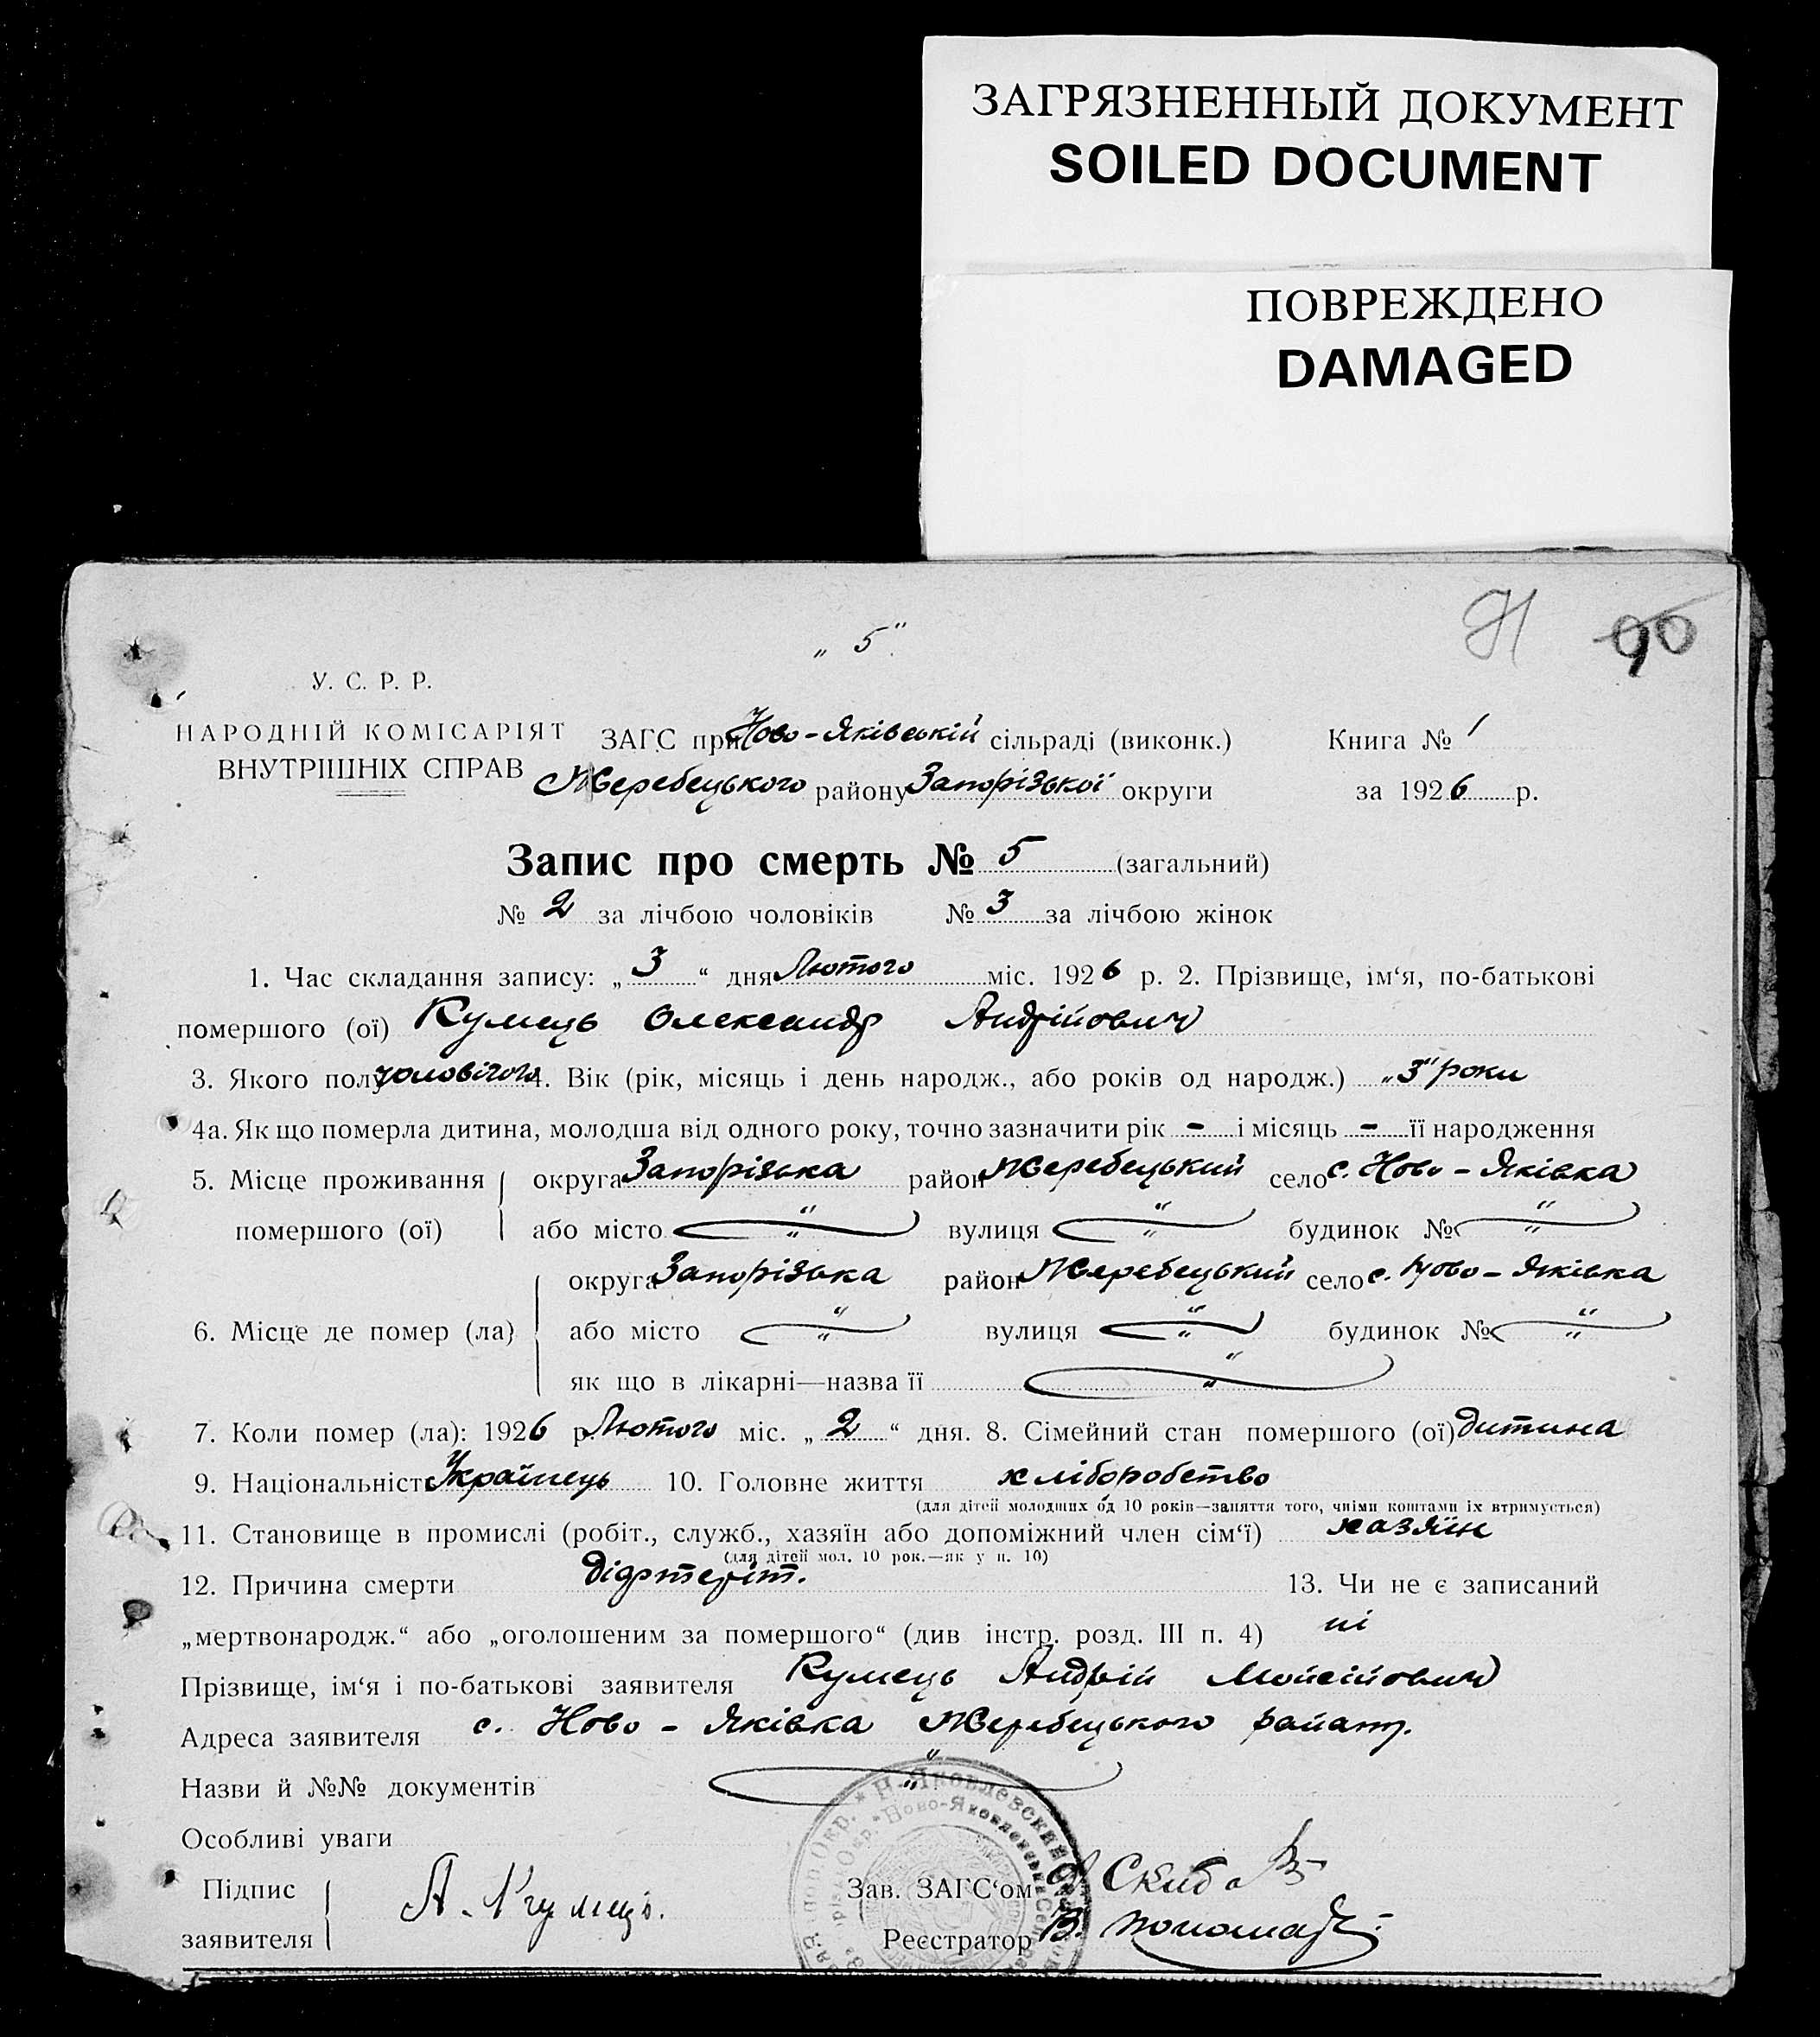 ЗАГРЯЗНЕННЫЙ ДОКУМЕНТ
SOILED DOCUMENT
ПОВРЕЖДЕНО
DAMAGED
„ 5 “
91 90
У. С. Р. Р.
НАРОДНІЙ КОМІСАРІЯТ
ВНУТРІШНІХ СПРАВ
ЗАГС при Ново-Яківській сільраді (виконк.) Книга № 1
Жеребецького району Запорізької округи за 1926 р.
Запис про смерть № 5 (загальний)
№ 2 за лічбою чоловіків № 3 за лічбою жінок
1. Час складання запису: „ 3 “ дня Лютого міс. 1926 р. 2. Прізвище, ім‘я, по-батькові
помершого (ої) Кумець Олександр Андрійович
3. Якого полу чоловічого 4. Вік (рік, місяць і день народж., або років од народж.) „3“ роки
4а. Як що померла дитина, молодша від одного року, точно зазначити рік - і місяць - її народження
5. Місце проживання округа Запорізька район Жеребецький село с. Ново-Яківка
помершого (ої) або місто " вулиця " будинок № "
округа Запорізька район Жеребецький село с. Ново-Яківка
6. Місце де помер (ла) або місто " вулиця " будинок № "
як що в лікарні—назва її "
7. Коли помер (ла): 1926 р. Лютого міс. „ 2 “ дня. 8. Сімейний стан помершого (ої) дитина
9. Національність Українець 10. Головне життя хліборобство
(для дітей молодших од 10 років—заняття того, чиїми коштами їх втримується)
11. Становище в промислі (робіт., служб., хазяїн або допоміжний член сім‘ї) хазяїн
(для дітей мол. 10 рок.—як у п. 10)
12. Причина смерти діфтеріт. 13. Чи не є записаний
„мертвонародж.“ або „оголошеним за помершого“ (див інстр. розд. III п. 4) ні
Прізвище, ім‘я і по-батькові заявителя Кумець Андрій Мойсійович
Адреса заявителя с. Ново-Яківка Жеребецького
Назви й №№ документів "
Особливі уваги
Підпис
заявителя А. Кумець.
Зав. ЗАГС‘ом Скиба
Реєстратор В. Пономар